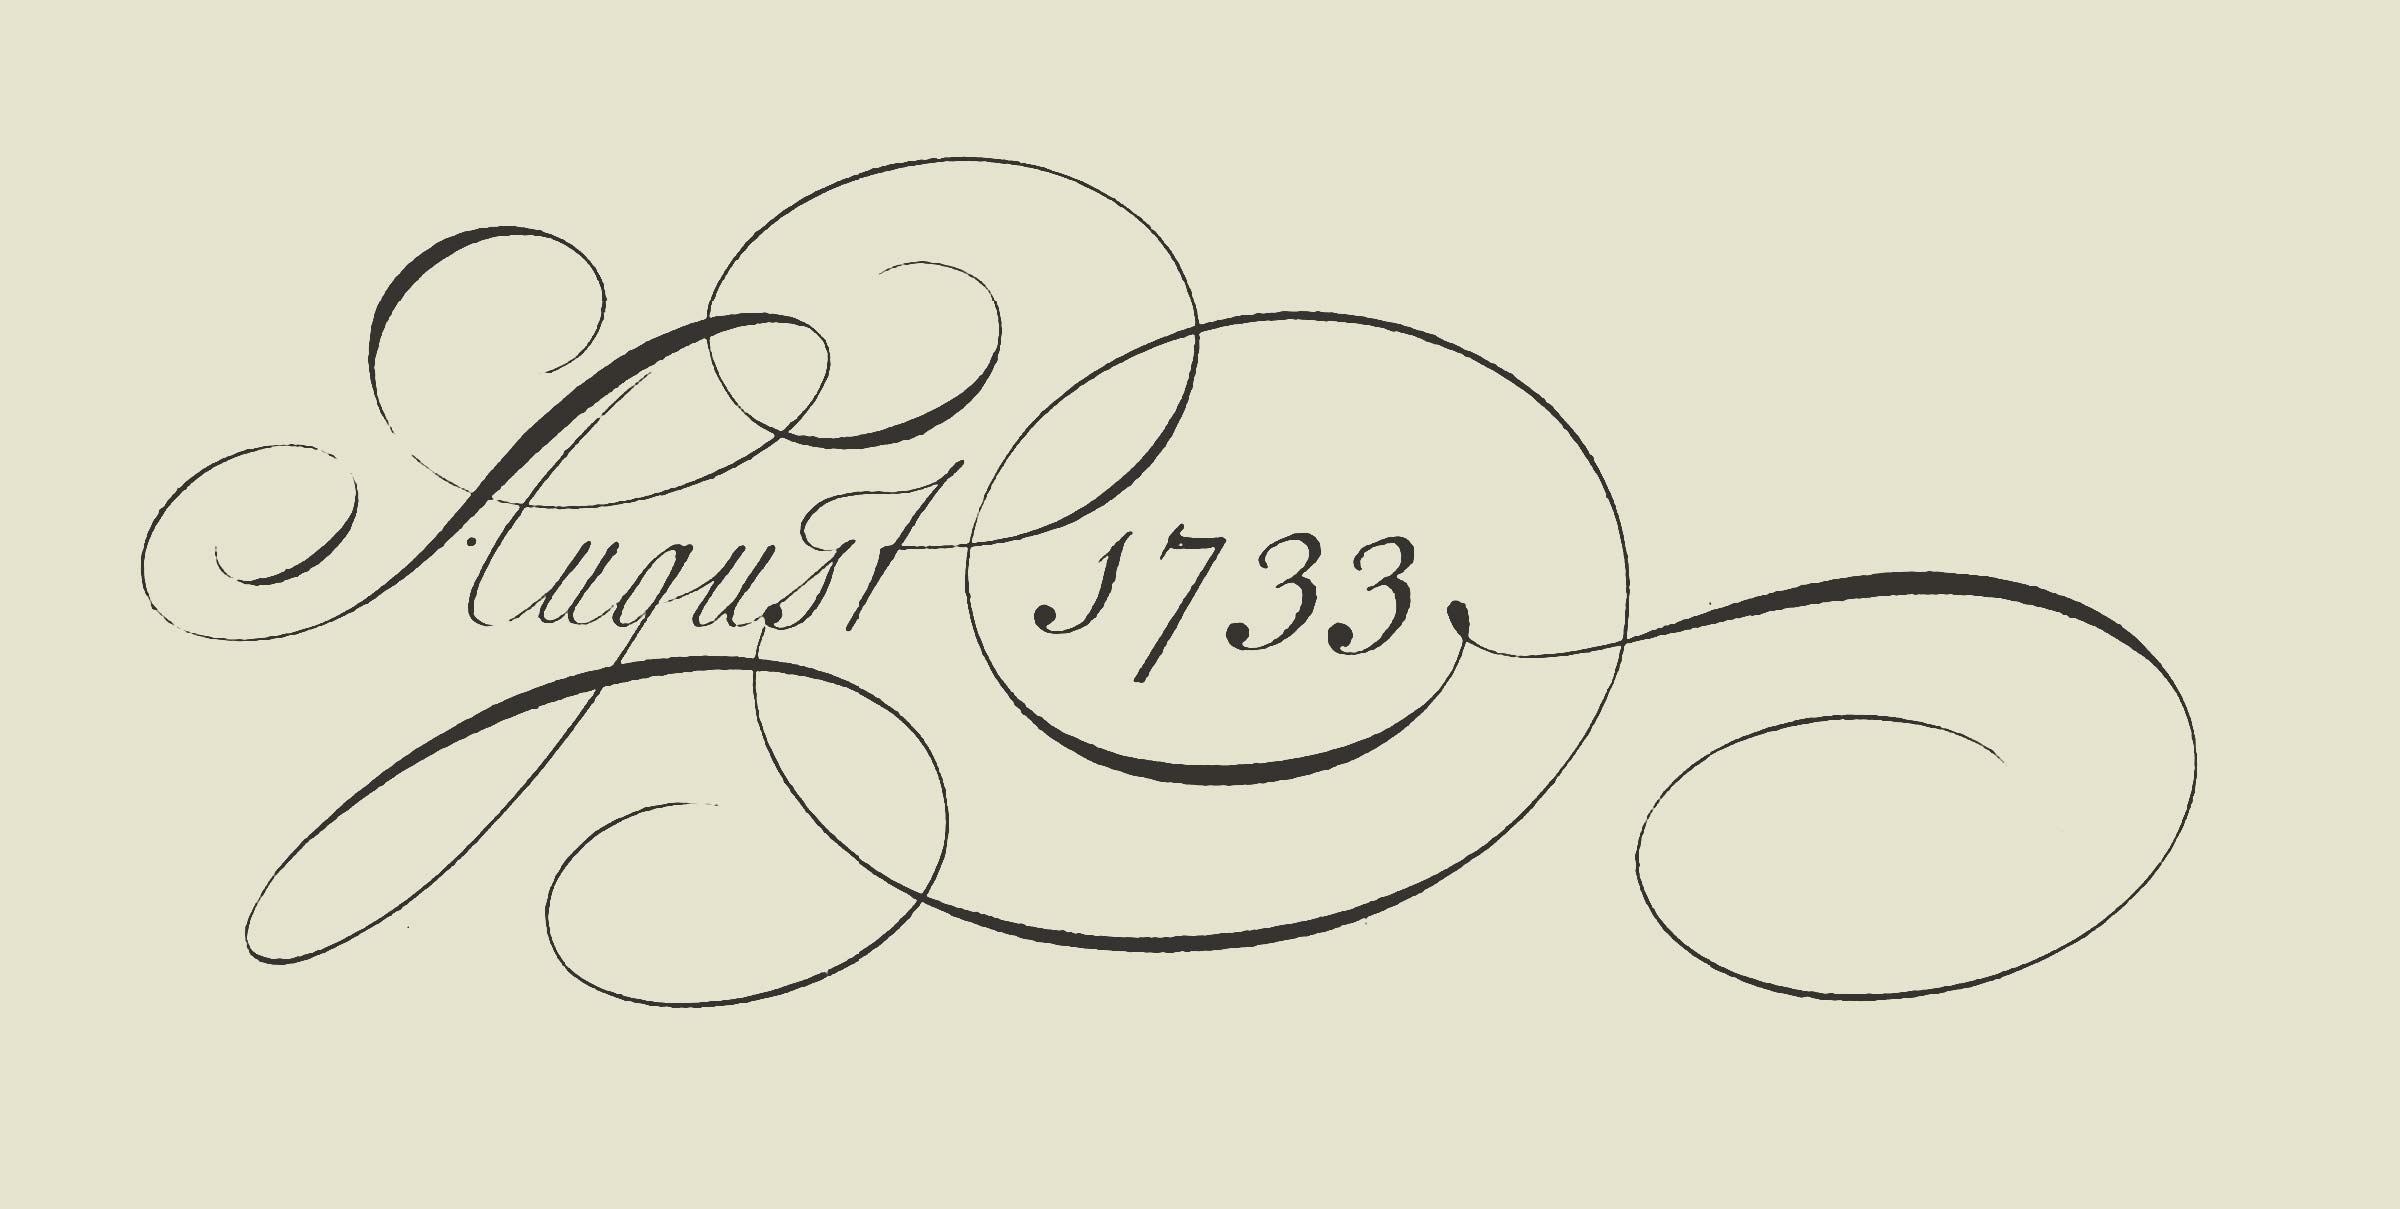 August 1733